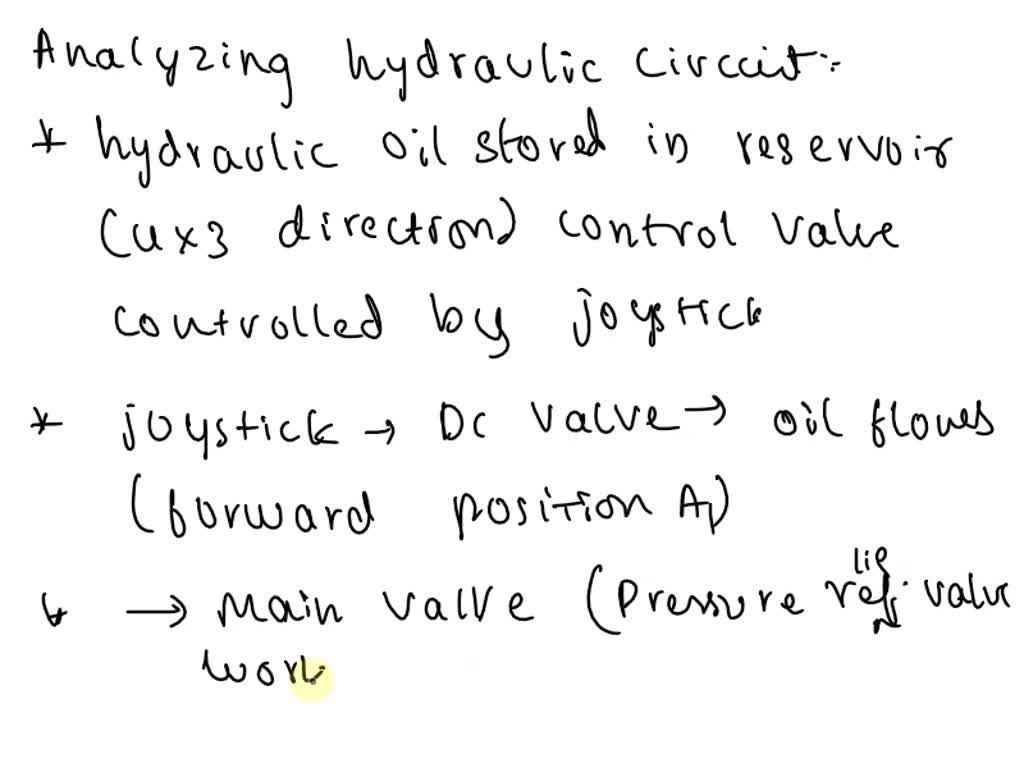 Analyzing hydraulic circuit:-
* hydraulic oil stored in reservoir
(4x3 direction) control valve
controlled by joystick
* joystick → DC valve → oil flows
(forward position A1)
↳ → Main valve (Pressure relief valve
work